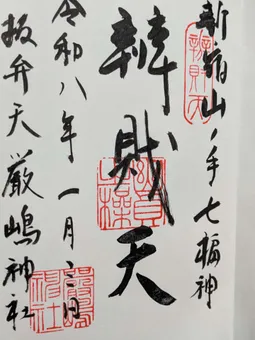 新宿山ノ手七福神
辨財天
令和八年一月二日
抜弁天厳嶋神社